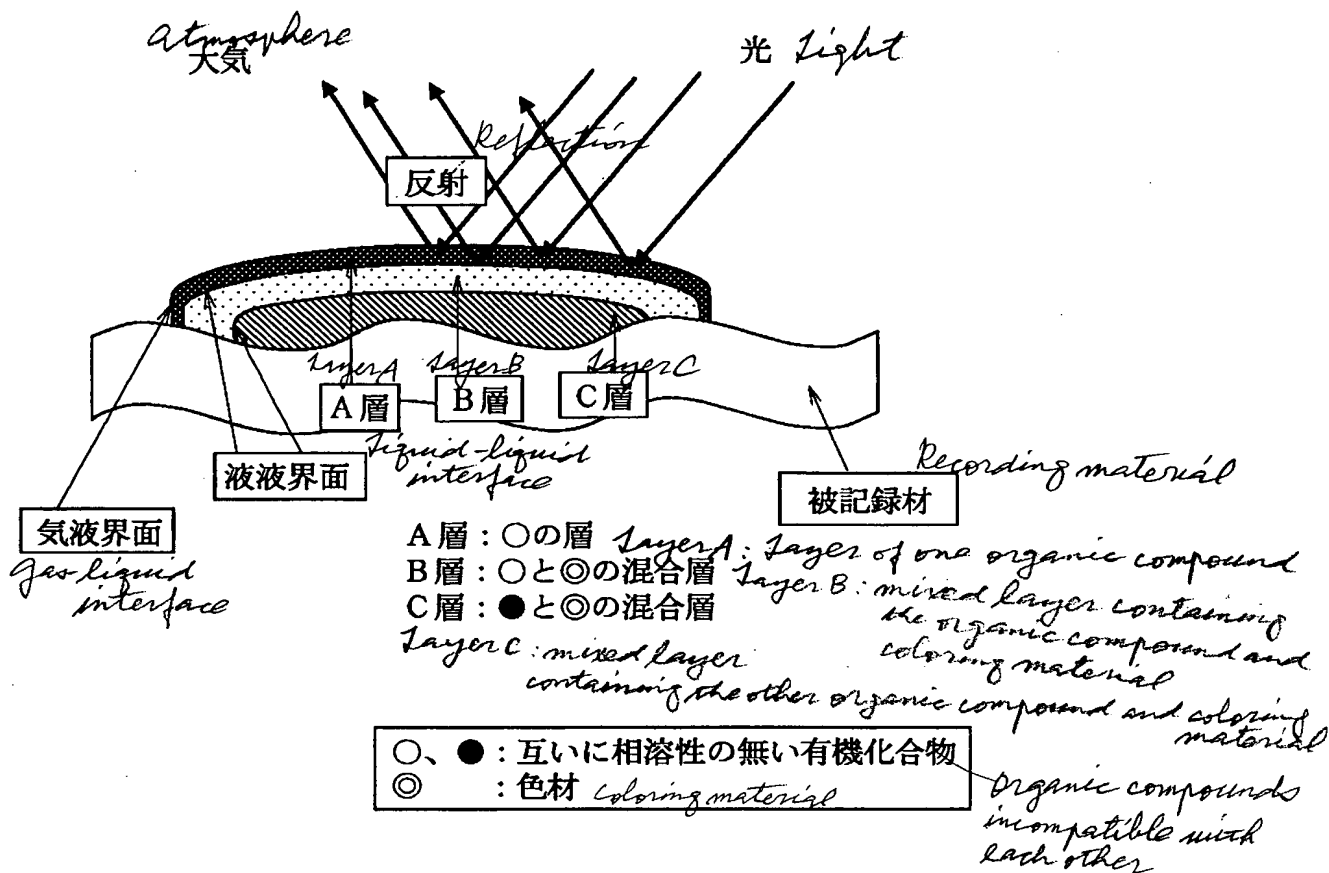 Atmosphere
大気
光 Light
Reflection
反射
Layer A
Layer B
Layer C
A層
B層
C層
液液界面
Liquid-liquid
interface
Recording material
被記録材
気液界面
Gas-liquid
interface
A層：○の層 Layer A: Layer of one organic compound
B層：○と◎の混合層 Layer B: mixed layer containing
the organic compound and
coloring material
C層：●と◎の混合層
Layer C: mixed layer
containing the other organic compound and coloring
material
○、●：互いに相溶性の無い有機化合物
◎　　：色材 coloring material
Organic compounds
incompatible with
each other